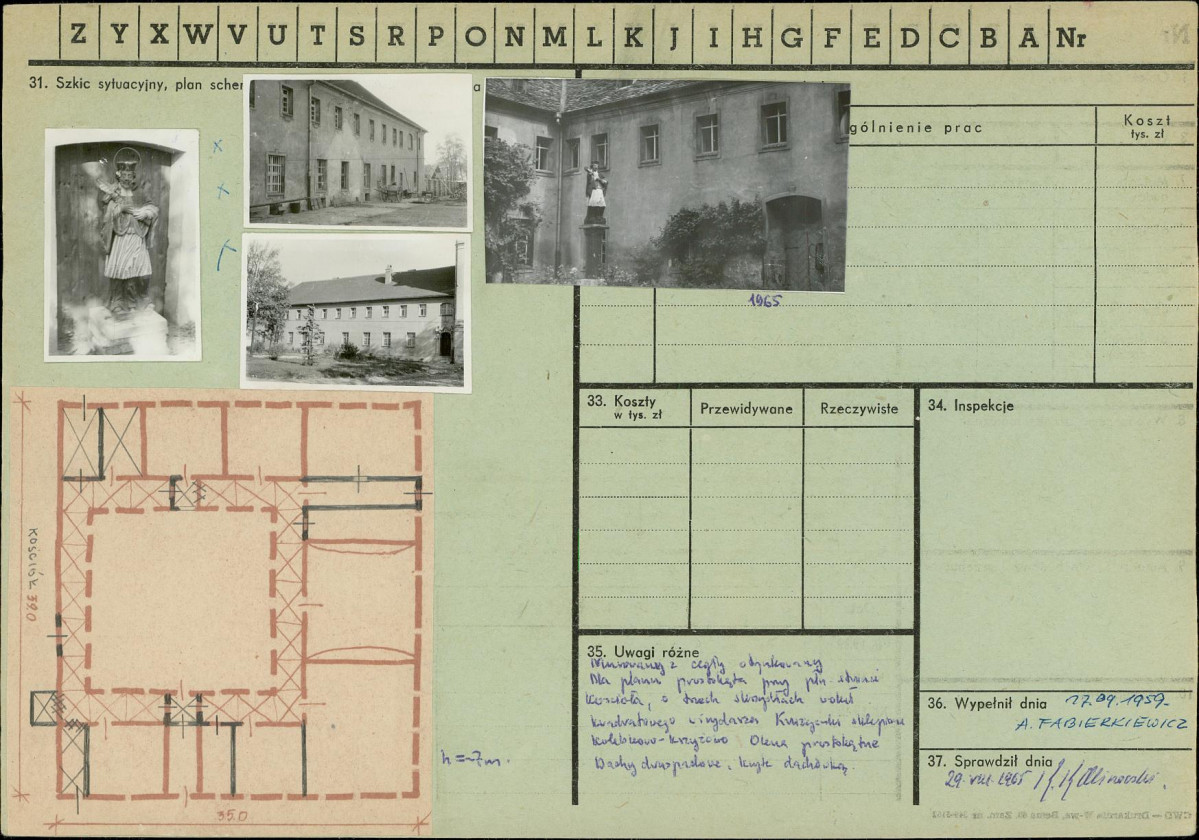 Z Y X W V U T S R P O N M L K J I H G F E D C B A Nr
31. Szkic sytuacyjny, plan scher
a
gólnienie prac
Koszt
tys. zł
1965
33. Koszty
w tys. zł
Przewidywane
Rzeczywiste
34. Inspekcje
KOŚCIÓŁ 39.0
35.0
h=~7m.
35. Uwagi różne
Murowany z cegły otynkowany
Na planie prostokąta przy płn. stronie
Kościoła, o trzech skrzydłach wokół
kwadratowego wirydarza Krużganki sklepione
kolebkowo-krzyżowo Okna prostokątne
Dachy dwuspadowe, kryte dachówką.
36. Wypełnił dnia 17.09.1959.
A. FABIERKIEWICZ
37. Sprawdził dnia
29.VIII.1965 Kalinowski